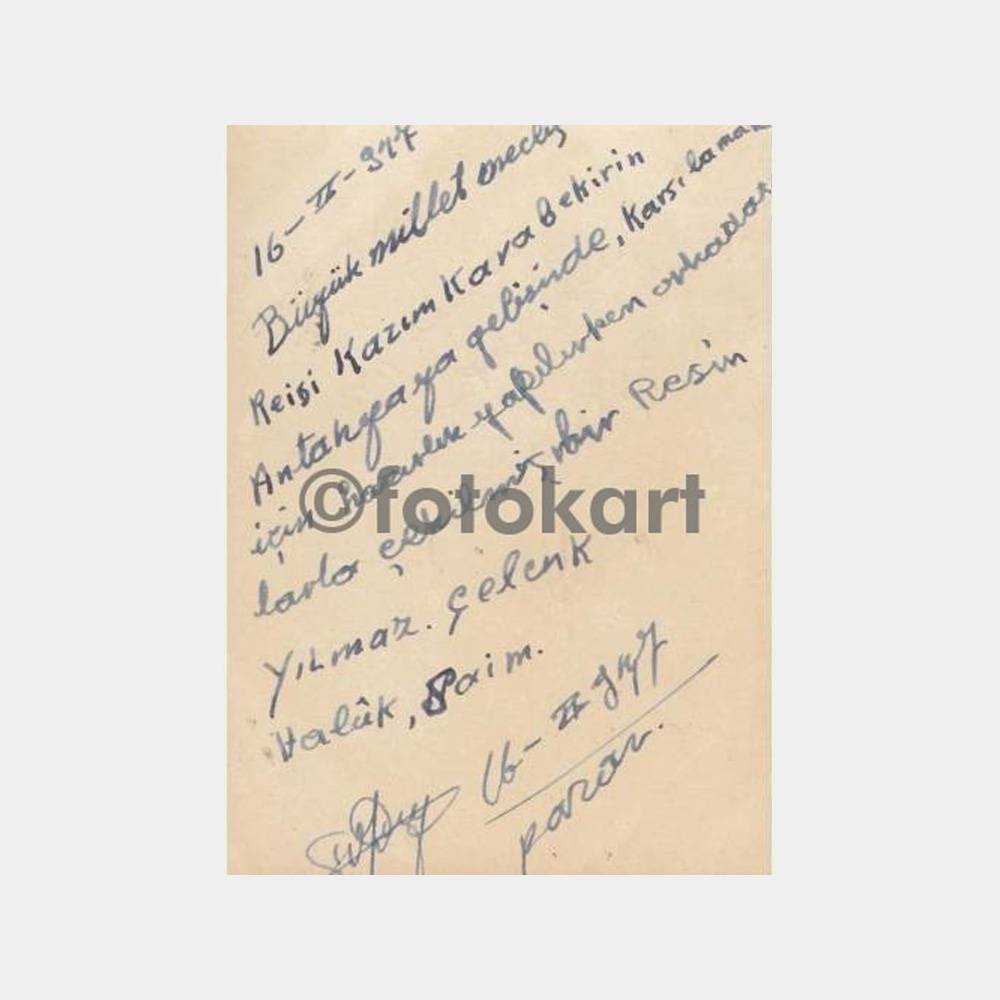 16-II-947
Büyük millet meclis
Reisi Kazım Karabekirin
Antakyaya gelişinde, Karşılamak
için hazırlık yapılırken arkadaş
larla çekilmiş bir Resim
Yılmaz. Çelenk
Halûk, Saim.
16-II-947
pazar.
©fotokart